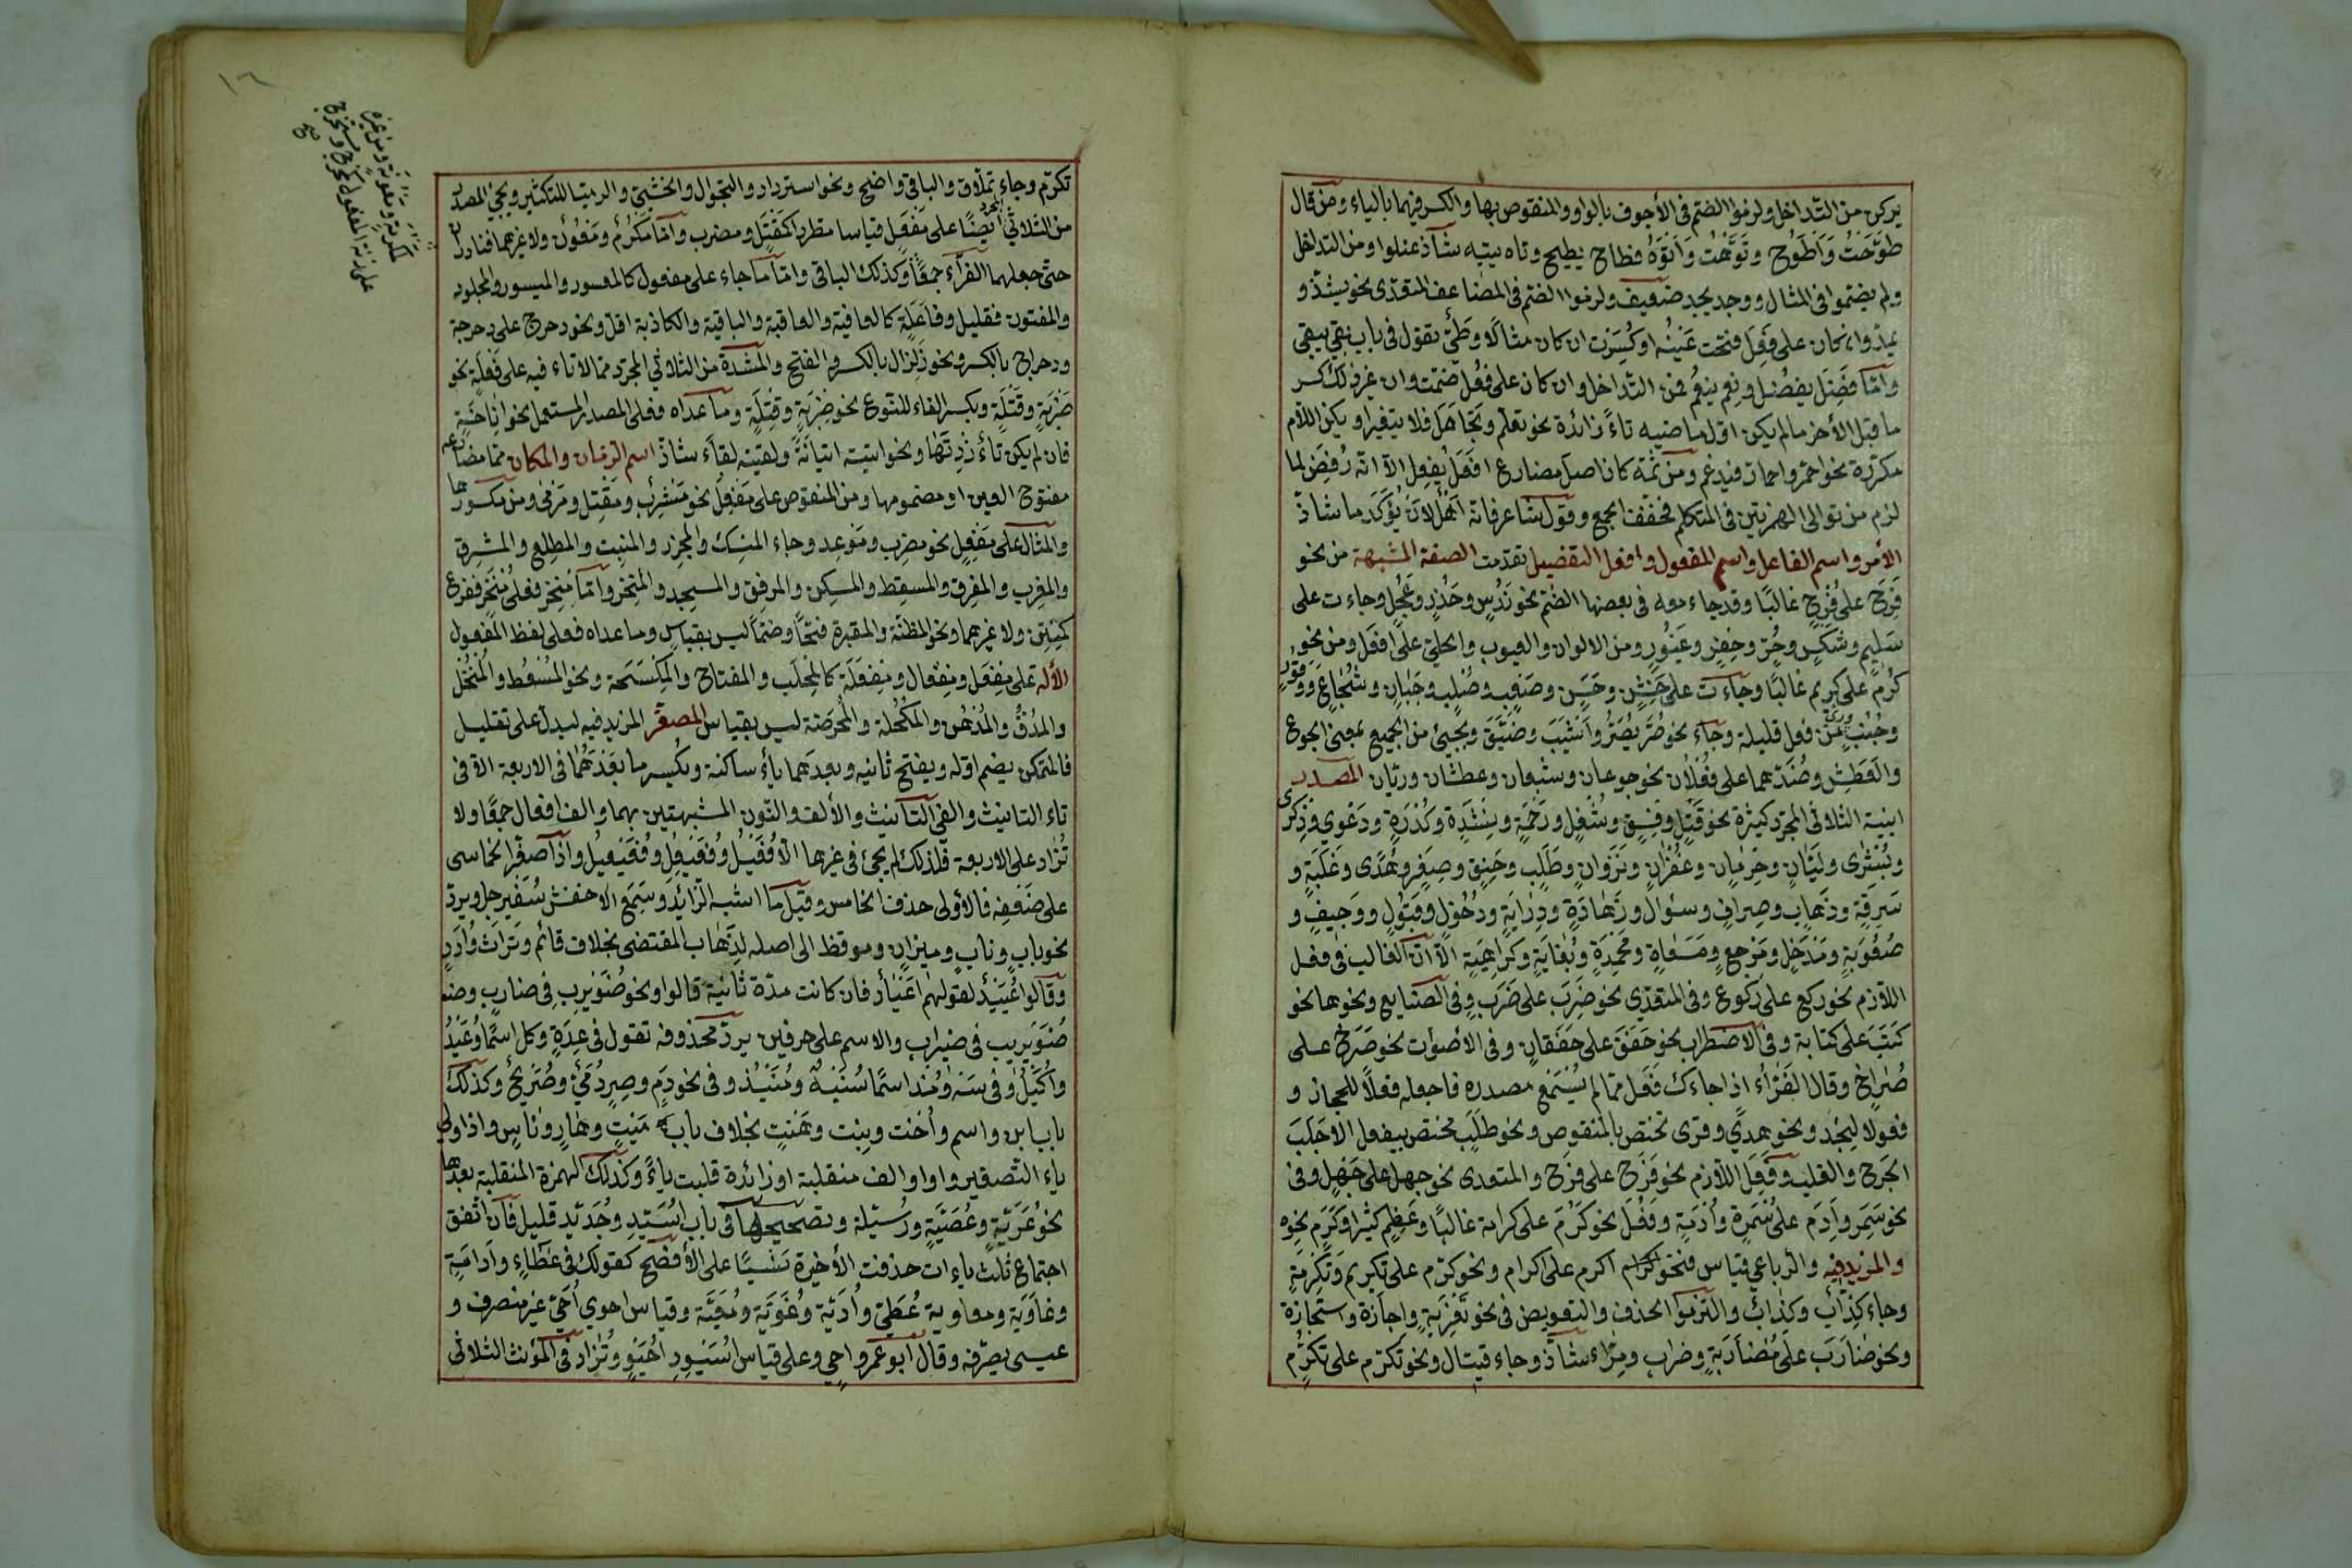 يركن من التداخل ولزموا الضم فى الأجوف بالواو والمنقوص بها والكسر فيهما بالياء ومن قال
طَوَّحَتُ وَاَطْوَحُ وَتَوَّهْتُ وَاَتْوَهُ فطاح يطيح وتاه يتيه شاذ عندوا ومن التداخل
ولم يضموا فى المثال ووجد يجد ضعيف ولزموا الضم فى المضاعف المتعدى نحو يشدّ و
يمدّ وان كان على فَعِلَ فتحت عَيْنُه اوكُسِرَت ان كان مثالًا وطَيِّئٌ يقول فى باب بقي يبقى
وامّا فَضِلَ يفضُل ونِعِم ينعُم فمن التداخل وان كان على فَعُل ضمّت وان غير ذلك كسر
ما قبل الأخر مالم يكن اوّل ماضيه تاءً زائدة نحو تعلّم وتَجَاهَل فلا يتغير او يكن اللّام
مكرّرة نحو احمرّ واحمارّ فيدغم ومن ثمة كان اصل مضارع افعَلَ يُفعِل الّا انّه رُفِضَ لما
لزم من توالى الهمزتين فى المتكلم فخفّف الجميع وقول شاعر فانّه اَهْلٌ لأَنْ يُؤَكْرَما شاذّ
الأمر واسم الفاعل واسم المفعول وافعل التفضيل تقدمت الصفة المشبهة من نحو
فَرِحَ على فَرِحٍ غالبًا وقد جاء معه فى بعضها الضّم نحو نَدُسٍ وحَذُرٍ وعَجُلٍ وجاءت على
سَلِيمٍ وشَكْسٍ وحُرٍّ وصِفْرٍ وغَيُورٍ ومن الالوان والعيوب والحلىّ على افعَل ومن نحو
كَرُمَ على كريم غالبًا وجاءت على خَشِنٍ وحَسَنٍ وصَعْبٍ وصُلْبٍ وجَبَانٍ وشُجَاعٍ ووَقُورٍ
وجُنُبٍ ومن فعل قليلة وجاء نحو حريص واَشْيَبَ وضَيِّقٍ ويجيئ من الجميع بمعنى الجوع
والعَطَشِ وضدّهما على فَعْلَان نحو جوعان وشبعان وعطشان وريّان المصدر
ابنية الثلاثى المجرّد كثيرة نحو قَتْلٍ وفِسْقٍ وشُغْلٍ ورَحْمَةٍ ونِشْدَةٍ وكُدْرَةٍ ودَعْوَى وذِكْرَى
وبُشْرَى ولَيَّانٍ وحِرْمَانٍ وغُفْرَانٍ ونَزَوَانٍ وطَلَبٍ وخَنِقٍ وصِغَرٍ وهُدًى وغَلَبَةٍ و
سَرِقَةٍ وذَهَابٍ وصِرَافٍ وسُؤَالٍ وزَهَادَةٍ ودِرَايَةٍ ودُخُولٍ وقَبُولٍ ووَجِيفٍ و
صُهُوبَةٍ ومَدْخَلٍ ومَرْجِعٍ ومَسْعَاةٍ ومَحْمِدَةٍ وبُغَايَةٍ وكَرَاهِيَةٍ الّا انّ الغالب فى فعل
اللّازم نحو ركع على رُكوع وفى المتعدّى نحو ضَرَبَ على ضَرْبٍ وفى الصنايع ونحوها نحو
كَتَبَ على كتابة وفى الاضطراب نحو خَفَقَ على خَفَقَانٍ وفى الأصوات نحو صَرَخَ على
صُرَاخٍ وقال الفَرّاء اذا جاءك فَعَلَ ممّا لم يُسْمَعْ مصدره فاجعله فَعْلاً للحجاز و
فعولا لنجْد ونحو هدىً وقرى مختصّ بالمنقوص ونحو طَلَبٍ مختصّ بيفعل الا جَلَبَ
الجَرح والغلب وفَعِلَ اللّازم نحو فَرِحَ على فَرَح والمتعدى نحو جهل على جَهْلٍ وفى
نحو سَمِرَ واَدِمَ على سُمْرَةٍ واُدْمَةٍ وفَعُلَ نحو كَرُمَ على كرامة غالبًا وعِظَمٍ كثيرا وكَرَمٍ نحوه
والمزيد فيه والرّباعي قياس فنحو اكرم على اكرام ونحو كرّم على تكريم وتَكْرِمَةٍ
وجاء كِذّاب وكِذَاب والتزموا الحذف والتعويض فى نحو تَعْزِيَةٍ واِجَازة واستجازة
ونحو ضَارَبَ على مُضَارَبَةٍ وضِرابٍ ومِرّاء شاذّ وجاء قيتال ونحو تكرّم على تكرُّم
تكرّم وجاء تِملّاق والباقي واضح ونحو استرداد والتجوال والحثّيثى والرمّيّا للتكثير ويجئ المصدر
من الثلاثيّ المجرد ايضًا على مَفْعَل قياسا مطردا كمَقْتَل ومضرب وامّا مَكْرُم ومَعُون ولا غيرهما فنادر
حتّى جعلهما الفرّاء جمعًا وكذلك الباقى وامّا ما جاء على مفعول كالمعسور والميسور والمجلود
والمفتون فقليل وفاعلة كالعافية والعاقبة والباقية والكاذبة اقلّ ونحو دحرج على دحرجة
ودحراج بالكسر ونحو زَلزال بالكسر والفتح والمَرّة من الثلاثي المجرّد ممّا لا تاء فيه على فَعْلَةٍ نحو
ضَرْبَةٍ وقَتْلَةٍ وبكسر الفاء للنّوع نحو ضِرْبَةٍ وقِتْلَةٍ وما عداه فعلى المصدر المستعمل نحو اناخةٍ
فان لم يكن تاءٌ زِدتَها ونحو اتيته اتيانةً ولقيته لقاءة شاذّ اسم الزمان والمكان ممّا مضارعه
مفتوح العين او مضمومها ومن المنقوص على مَفْعَل نحو مَشْرَب ومَقْتَل ومَرْمى ومن مكسورها
والمثال على مَفْعِل نحو مضرِب ومَوعِد وجاء المنسِك والمجزِر والمنبِت والمطلِع والمشرِق
والمغرِب والمفرِق والمسقِط والمسكِن والمرفِق والمسجِد والمنخِر وامّا مِنخِر ففرع
كمِنتِن ولا غيرهما ونحو المظنّة والمقبرة فتحًا وضمًّا ليس بقياسٍ وما عداه فعلى لفظ المفعول
الألة على مِفعَل ومِفْعَال ومِفْعَلَة كالمِحْلَب والمفتاح والمِكْسَحَة ونحو المُسْعُط والمُنْخُل
والمُدُقّ والمُدْهُن والمُكْحُلة والمُحْرُضَة ليس بقياس المصغّر المزيد فيه ليدلّ على تقليل
فالمتمكن يضم اوّله ويفتح ثانيه وبعدهما ياءٌ ساكنة ويُكسر ما بعدهما فى الاربعة الّا فى
تاء التانيث والفى التأنيث والألف والنّون المشبهتين بهما والف افعال جمعًا ولا
تُزاد على الاربعة فلذلك لم يجئ فى غيرها الّا فُعَيْلٌ وفُعَيْعِلٌ وفُعَيْعِيلٌ واذا صغّر الخماسى
على ضَعْفِه فالأولى حذف الخامس وقيل ما اشبه الزائد وسَمِعَ الاخفش سُفَيْرِجِل ويردّ
نحو بابٍ ونابٍ وميزانٍ وموقظ الى اصله لذَهاب المقتضى بخلاف قائم وتراث واُدَدٍ
وقالوا عُيَيْدٌ لقولهم اعْيَادٌ فان كانت مدّة ثانية قالوا ونحو ضُوَيْرِبٍ فى ضاربٍ و
ضُوَيْرِيب فى ضيراب والاسم على حرفين يردّ محذوفه تقول فى عِدَةٍ وكل اسمًا وُعَيْدَةٌ
واُكَيْلٌ وفى سَهٍ ومُذ اسمًا سُتَيْهَةٌ ومُنَيْذٌ وفى نحو دَمٍ وحِرٍ دُمَيٌّ وحُرَيْحٌ وكذلك
باب ابن واسم واُخت وبِنت وهَنت بخلاف باب مَيْتٍ وهارٍ وناسٍ واذا ولى
ياء التّصغير واو او الف منقلبة او زائدة قلبت ياءً وكذلك الهمزة المنقلبة بعدها
نحو عُرَيَّةٍ وعُصَيَّةٍ ورُسَيِّلة وتصحيحها فى باب اُسَيِّدٍ وجُدَيِّدٍ قليل فان اتّفق
اجتماع ثلث ياءات حذفت الأخيرة نَسْيًا على الأفصح كقولك فى عَطَاءٍ واِدَاوَةٍ
وغاويَة ومعاوية عُطَيٌّ واُدَيَّة وغُوَيَّة ومُعَيَّة وقياس احوى اُحَيّ غير منصرف و
عيسى يصرفه وقال ابو عَمرو اُحَيٍّ وعلى قياس اُسَيْوِدٍ اُحَيْوٍ وتُزاد فى المؤنث الثلاثى
مَكرُمة ومَعُونة ومن غيره
على زنة المفعول كمُخرَج ومُستخرَج
صح
١٦